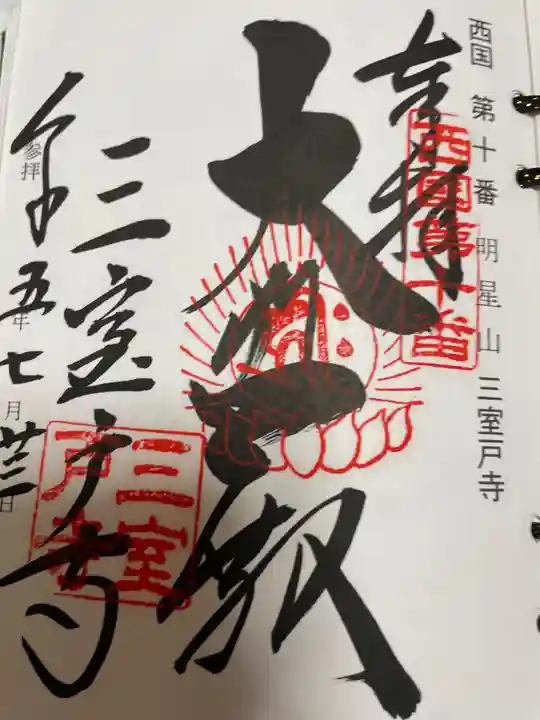 西国 第十番 明星山 三室戸寺
奉拝
西國第十番
大悲殿
三室戸寺
三室戸寺
参拝 令和五年七月廿三日